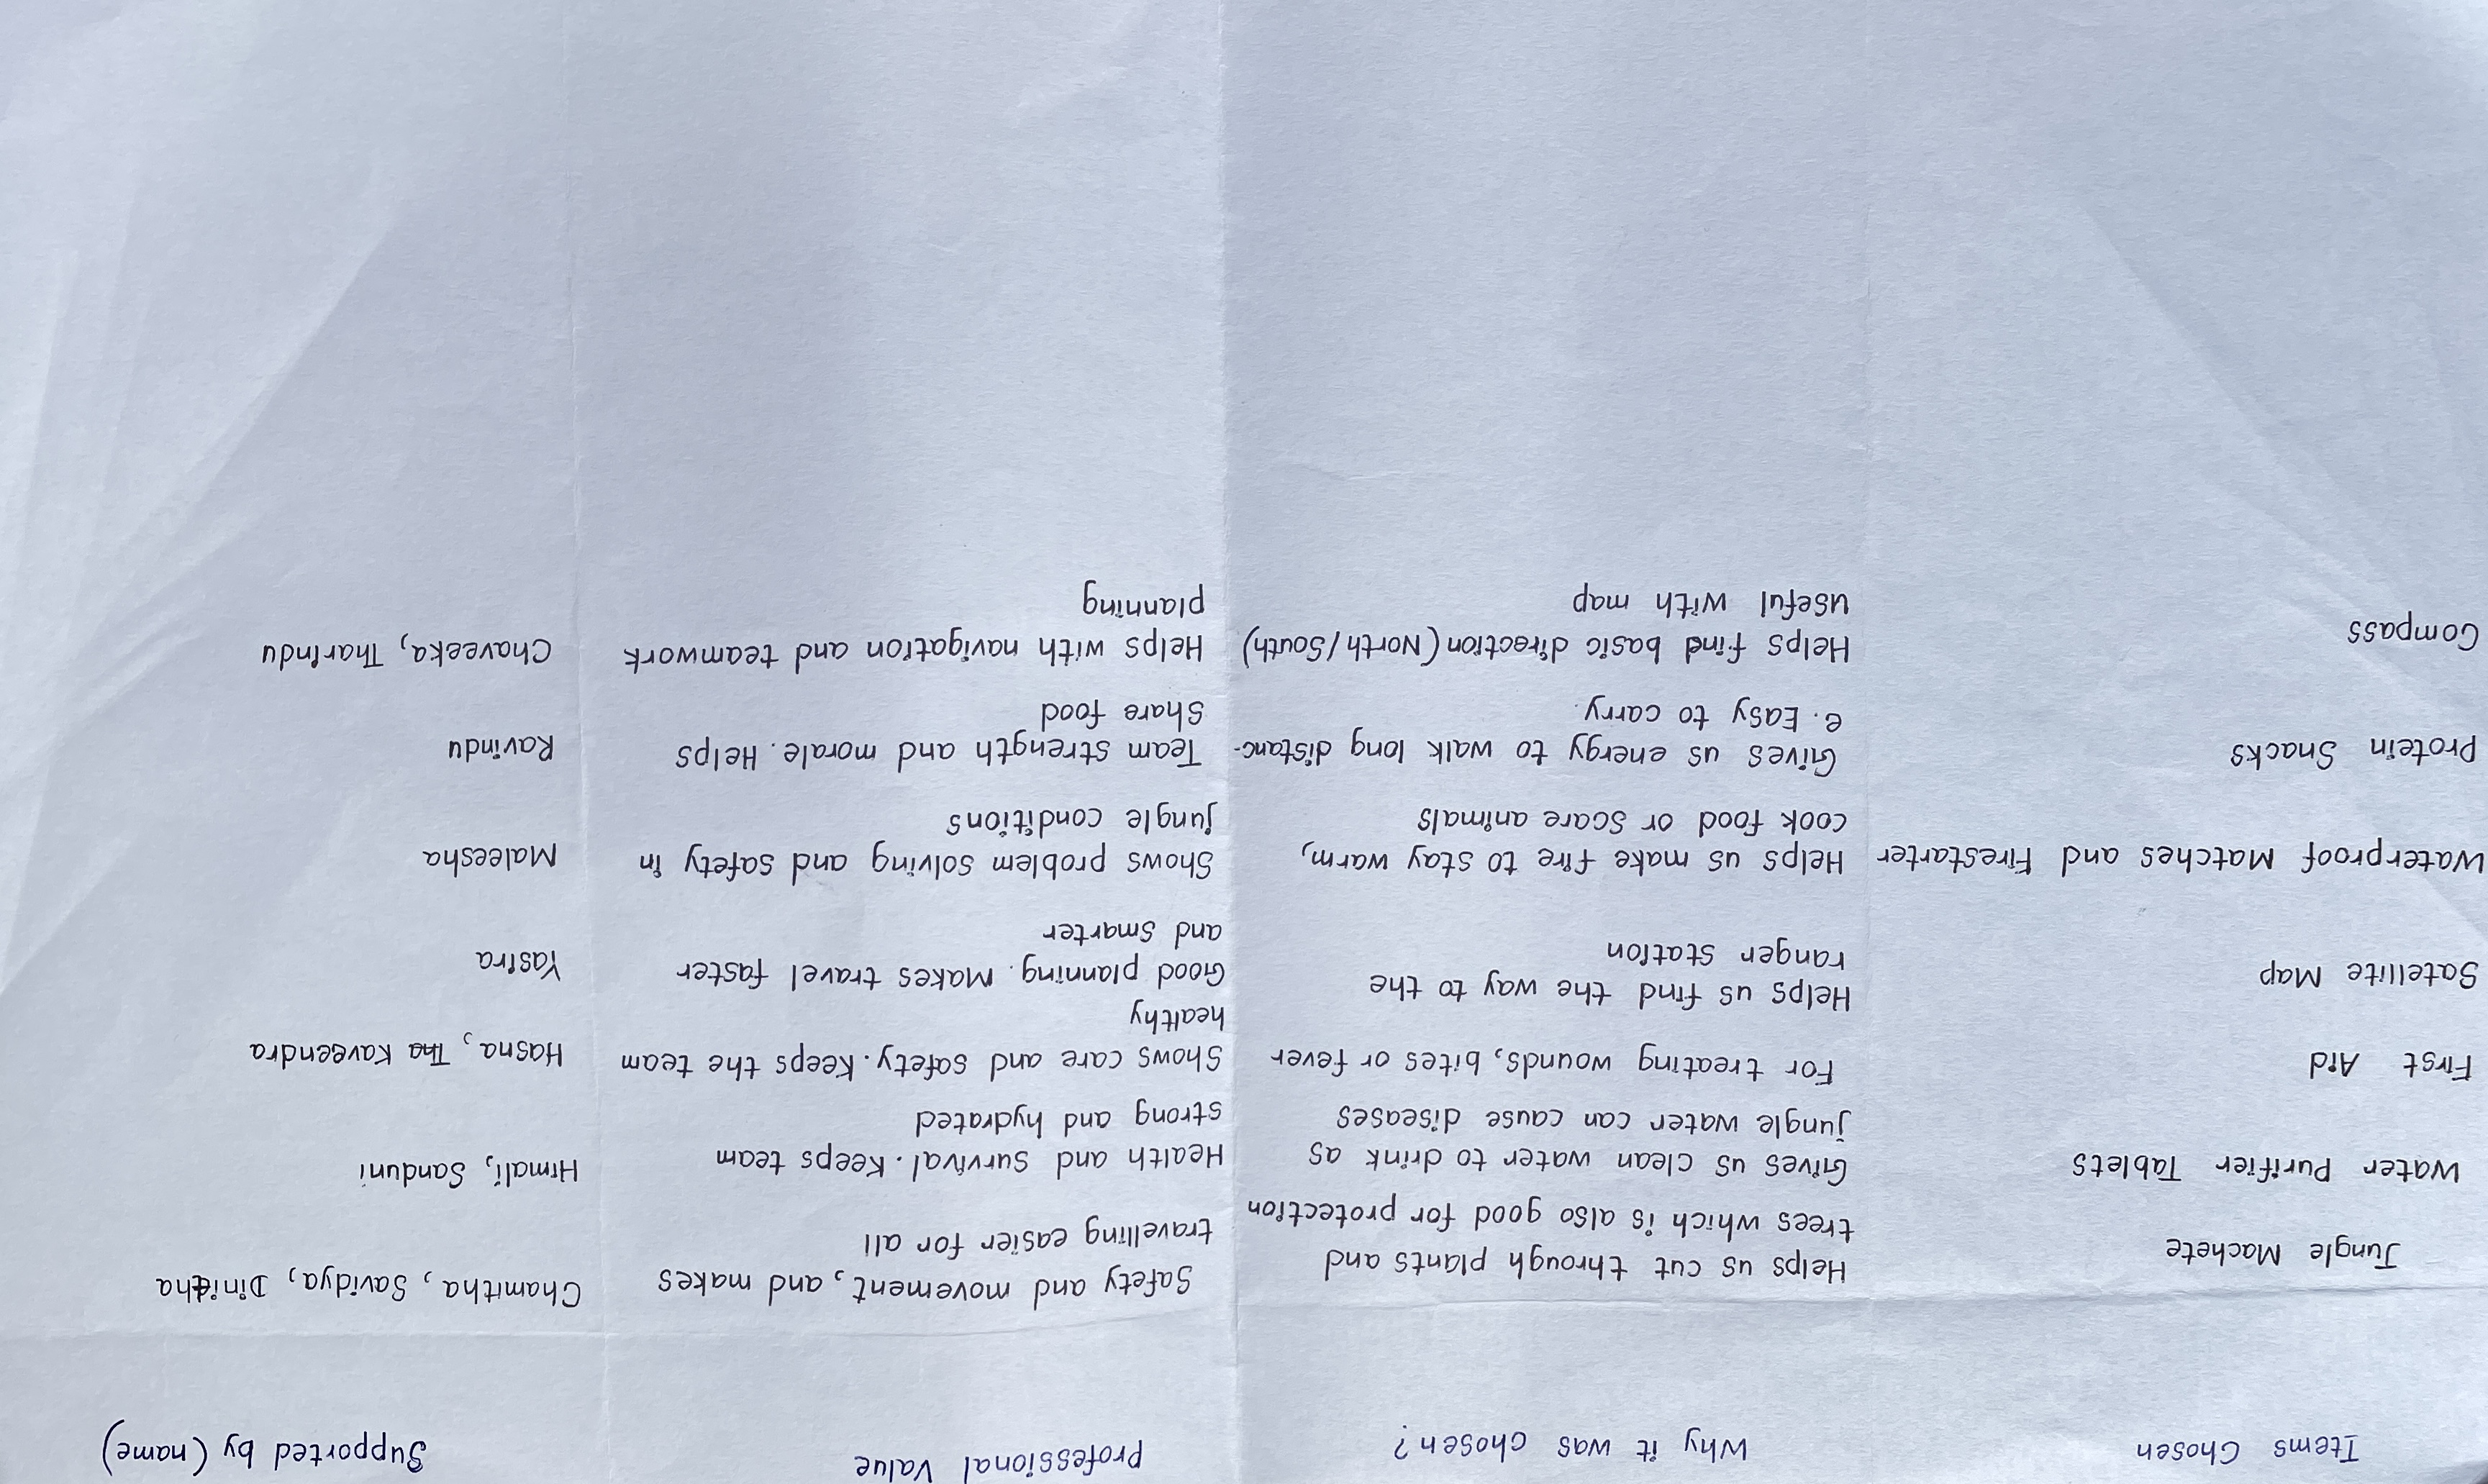 Items Chosen Why it was chosen? Professional Value Supported by (name)
Jungle Machete
Helps us cut through plants and
trees which is also good for protection
Safety and movement, and makes
travelling easier for all
Chamitha, Savidya, Dinitha
Water Purifier Tablets
Gives us clean water to drink as
jungle water can cause diseases
Health and survival. Keeps team
strong and hydrated
Himali, Sanduni
First Aid
For treating wounds, bites or fever
Shows care and safety. Keeps the team
healthy
Hasna, Tha Kaveendra
Satellite Map
Helps us find the way to the
ranger station
Good planning. Makes travel faster
and smarter
Yasira
Waterproof Matches and Firestarter
Helps us make fire to stay warm,
cook food or scare animals
Shows problem solving and safety in
jungle conditions
Maleesha
Protein Snacks
Gives us energy to walk long distanc-
e. Easy to carry.
Team strength and morale. Helps
share food
Ravindu
Compass
Helps find basic direction (North/South)
useful with map
Helps with navigation and teamwork
planning
Chaveeka, Tharindu